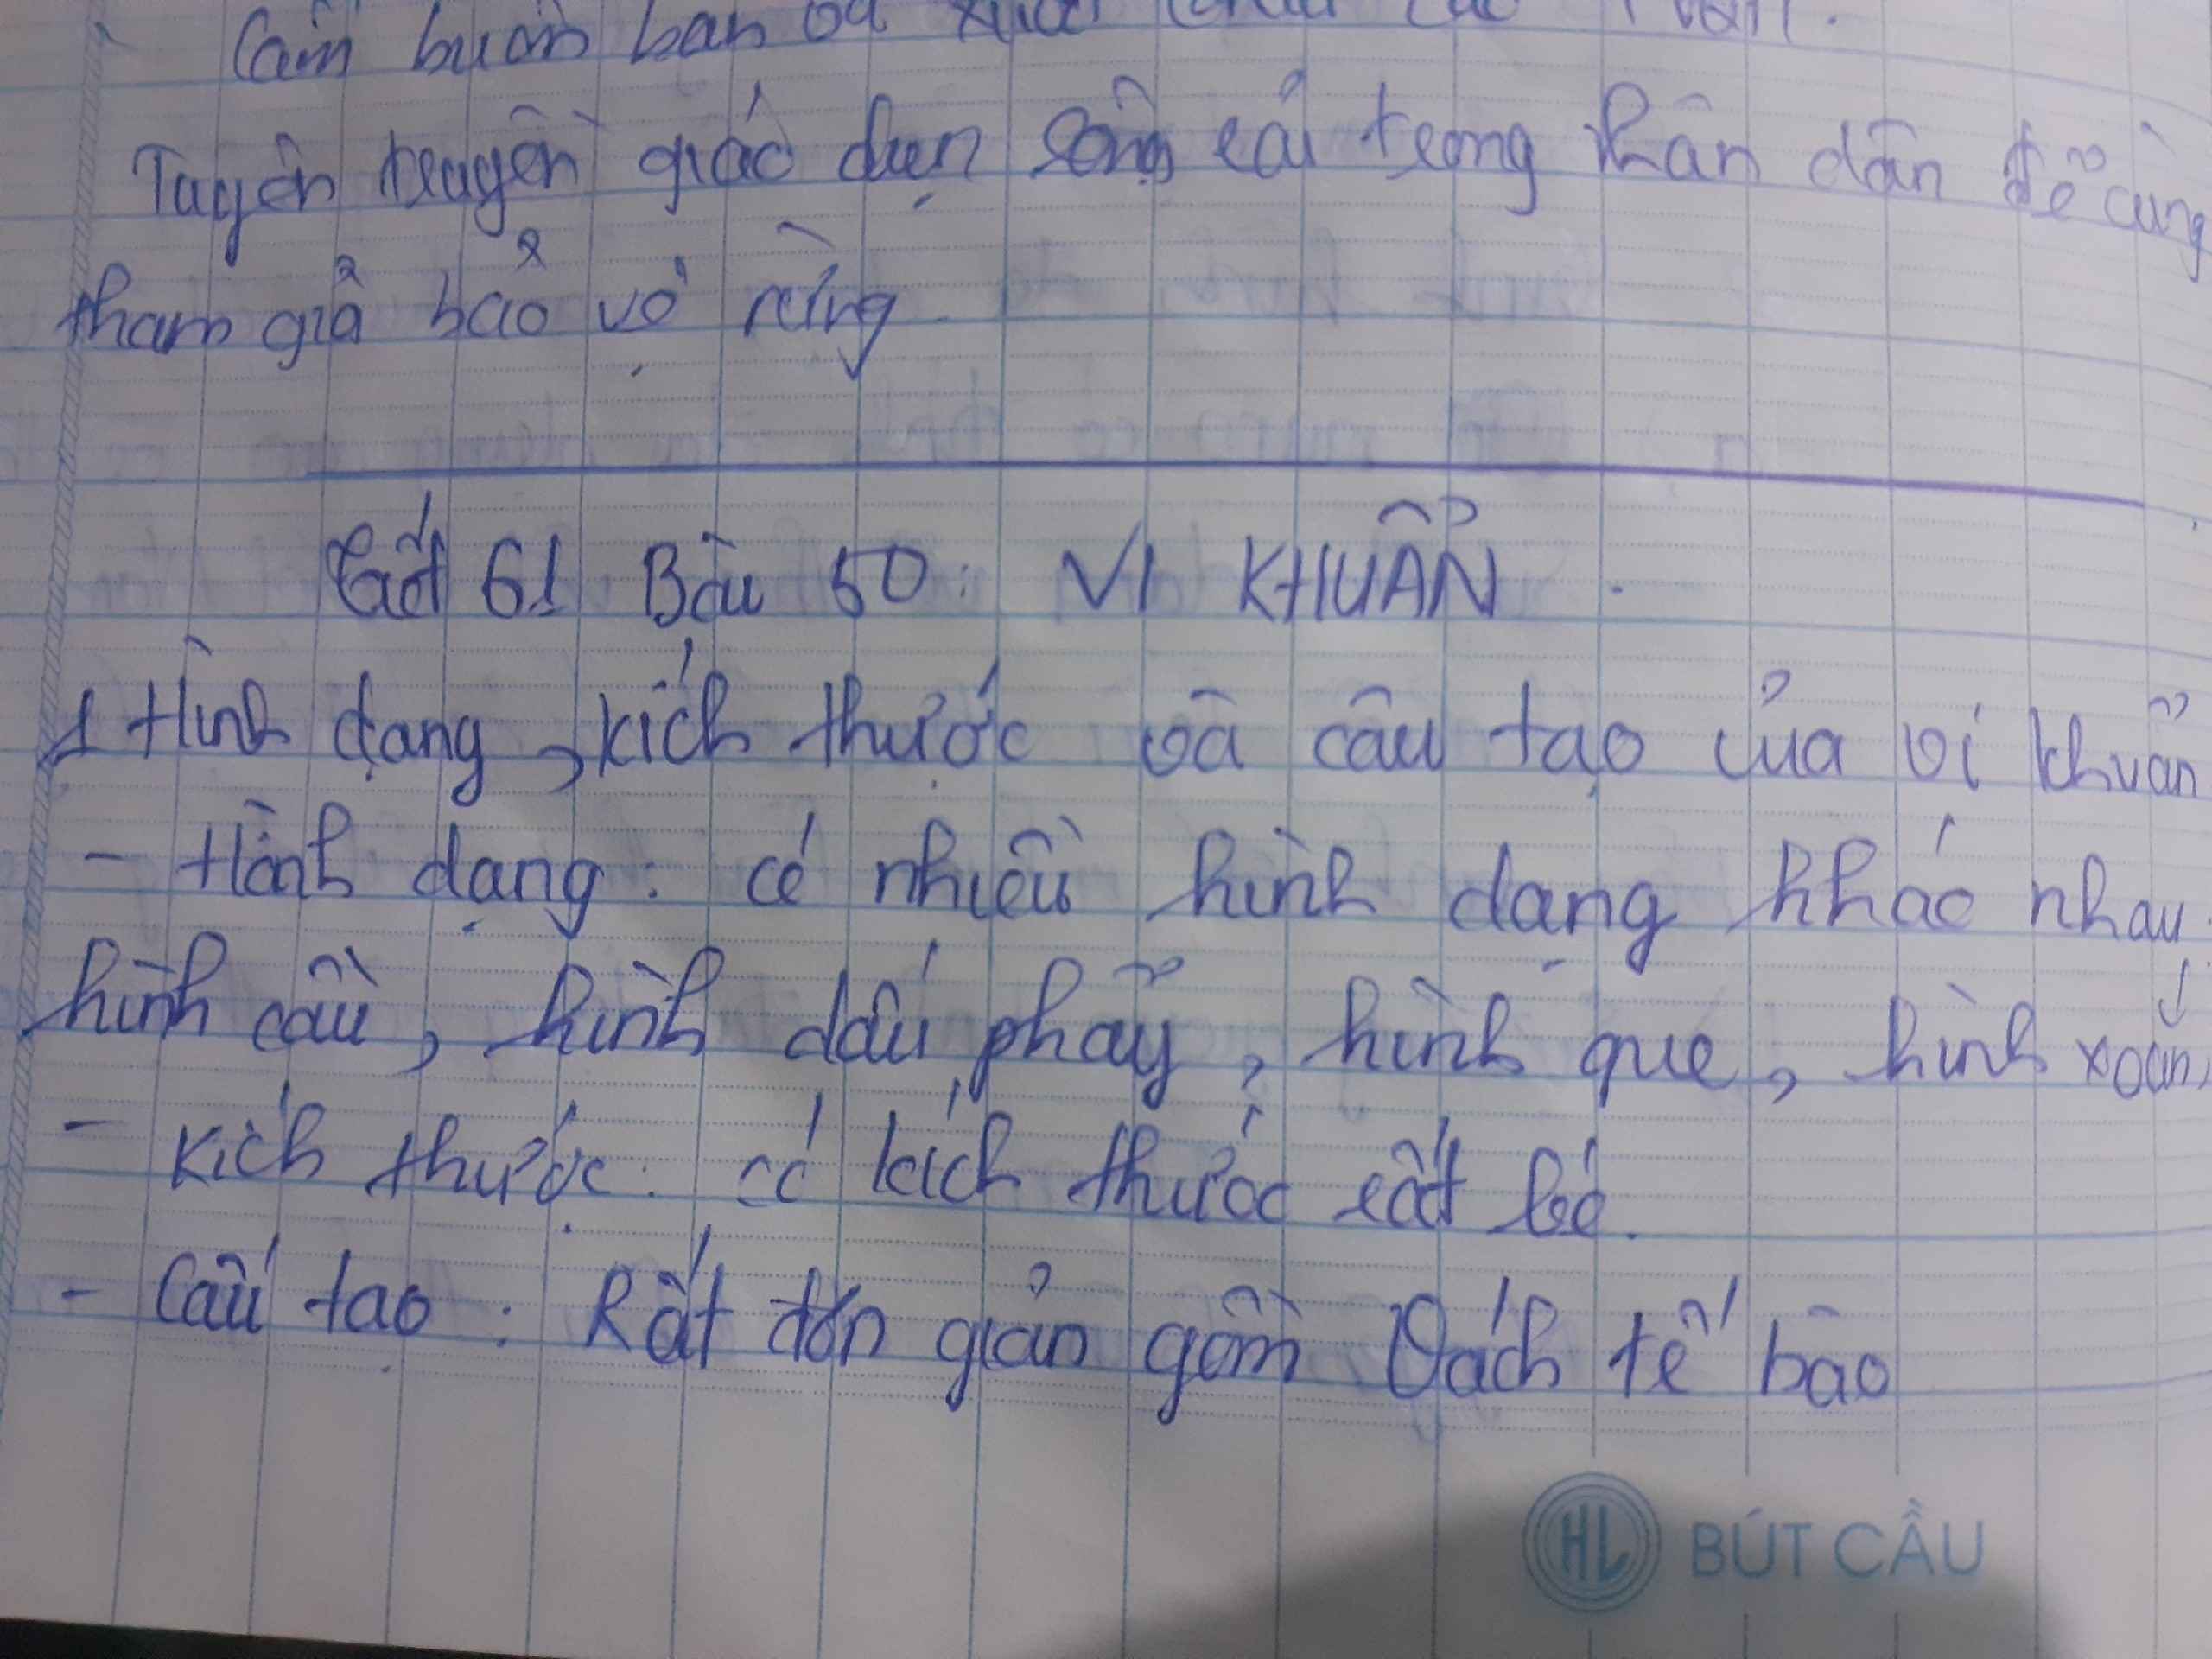 Cấm buôn bán và xuất
Tuyên truyền giáo dục rộng rãi trong nhân dân để cùng
tham gia bảo vệ rừng
Tiết 61 Bài 50: VI KHUẨN.
1 Hình dạng, kích thước và cấu tạo của vi khuẩn
- Hình dạng: có nhiều hình dạng khác nhau:
hình cầu, hình dấu phẩy, hình que, hình xoắn,
- Kích thước: có kích thước rất bé.
- Cấu tạo: Rất đơn giản gồm Vách tế bào
HL BÚT CẦU